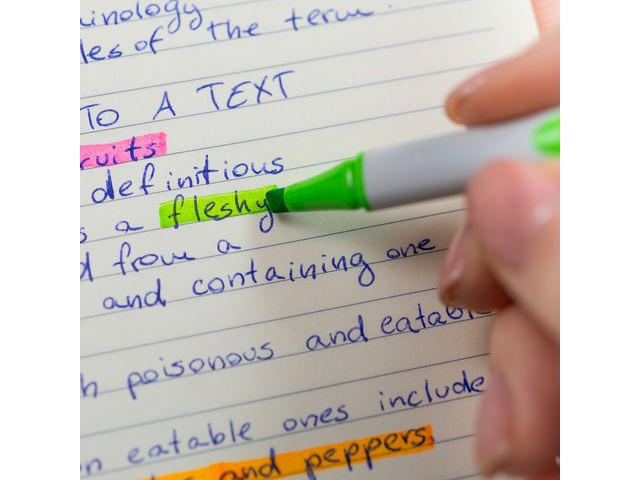 les of the term.
TO A TEXT
definitions
a fleshy
from a
and containing one
poisonous and eatable
eatable ones include
and peppers.